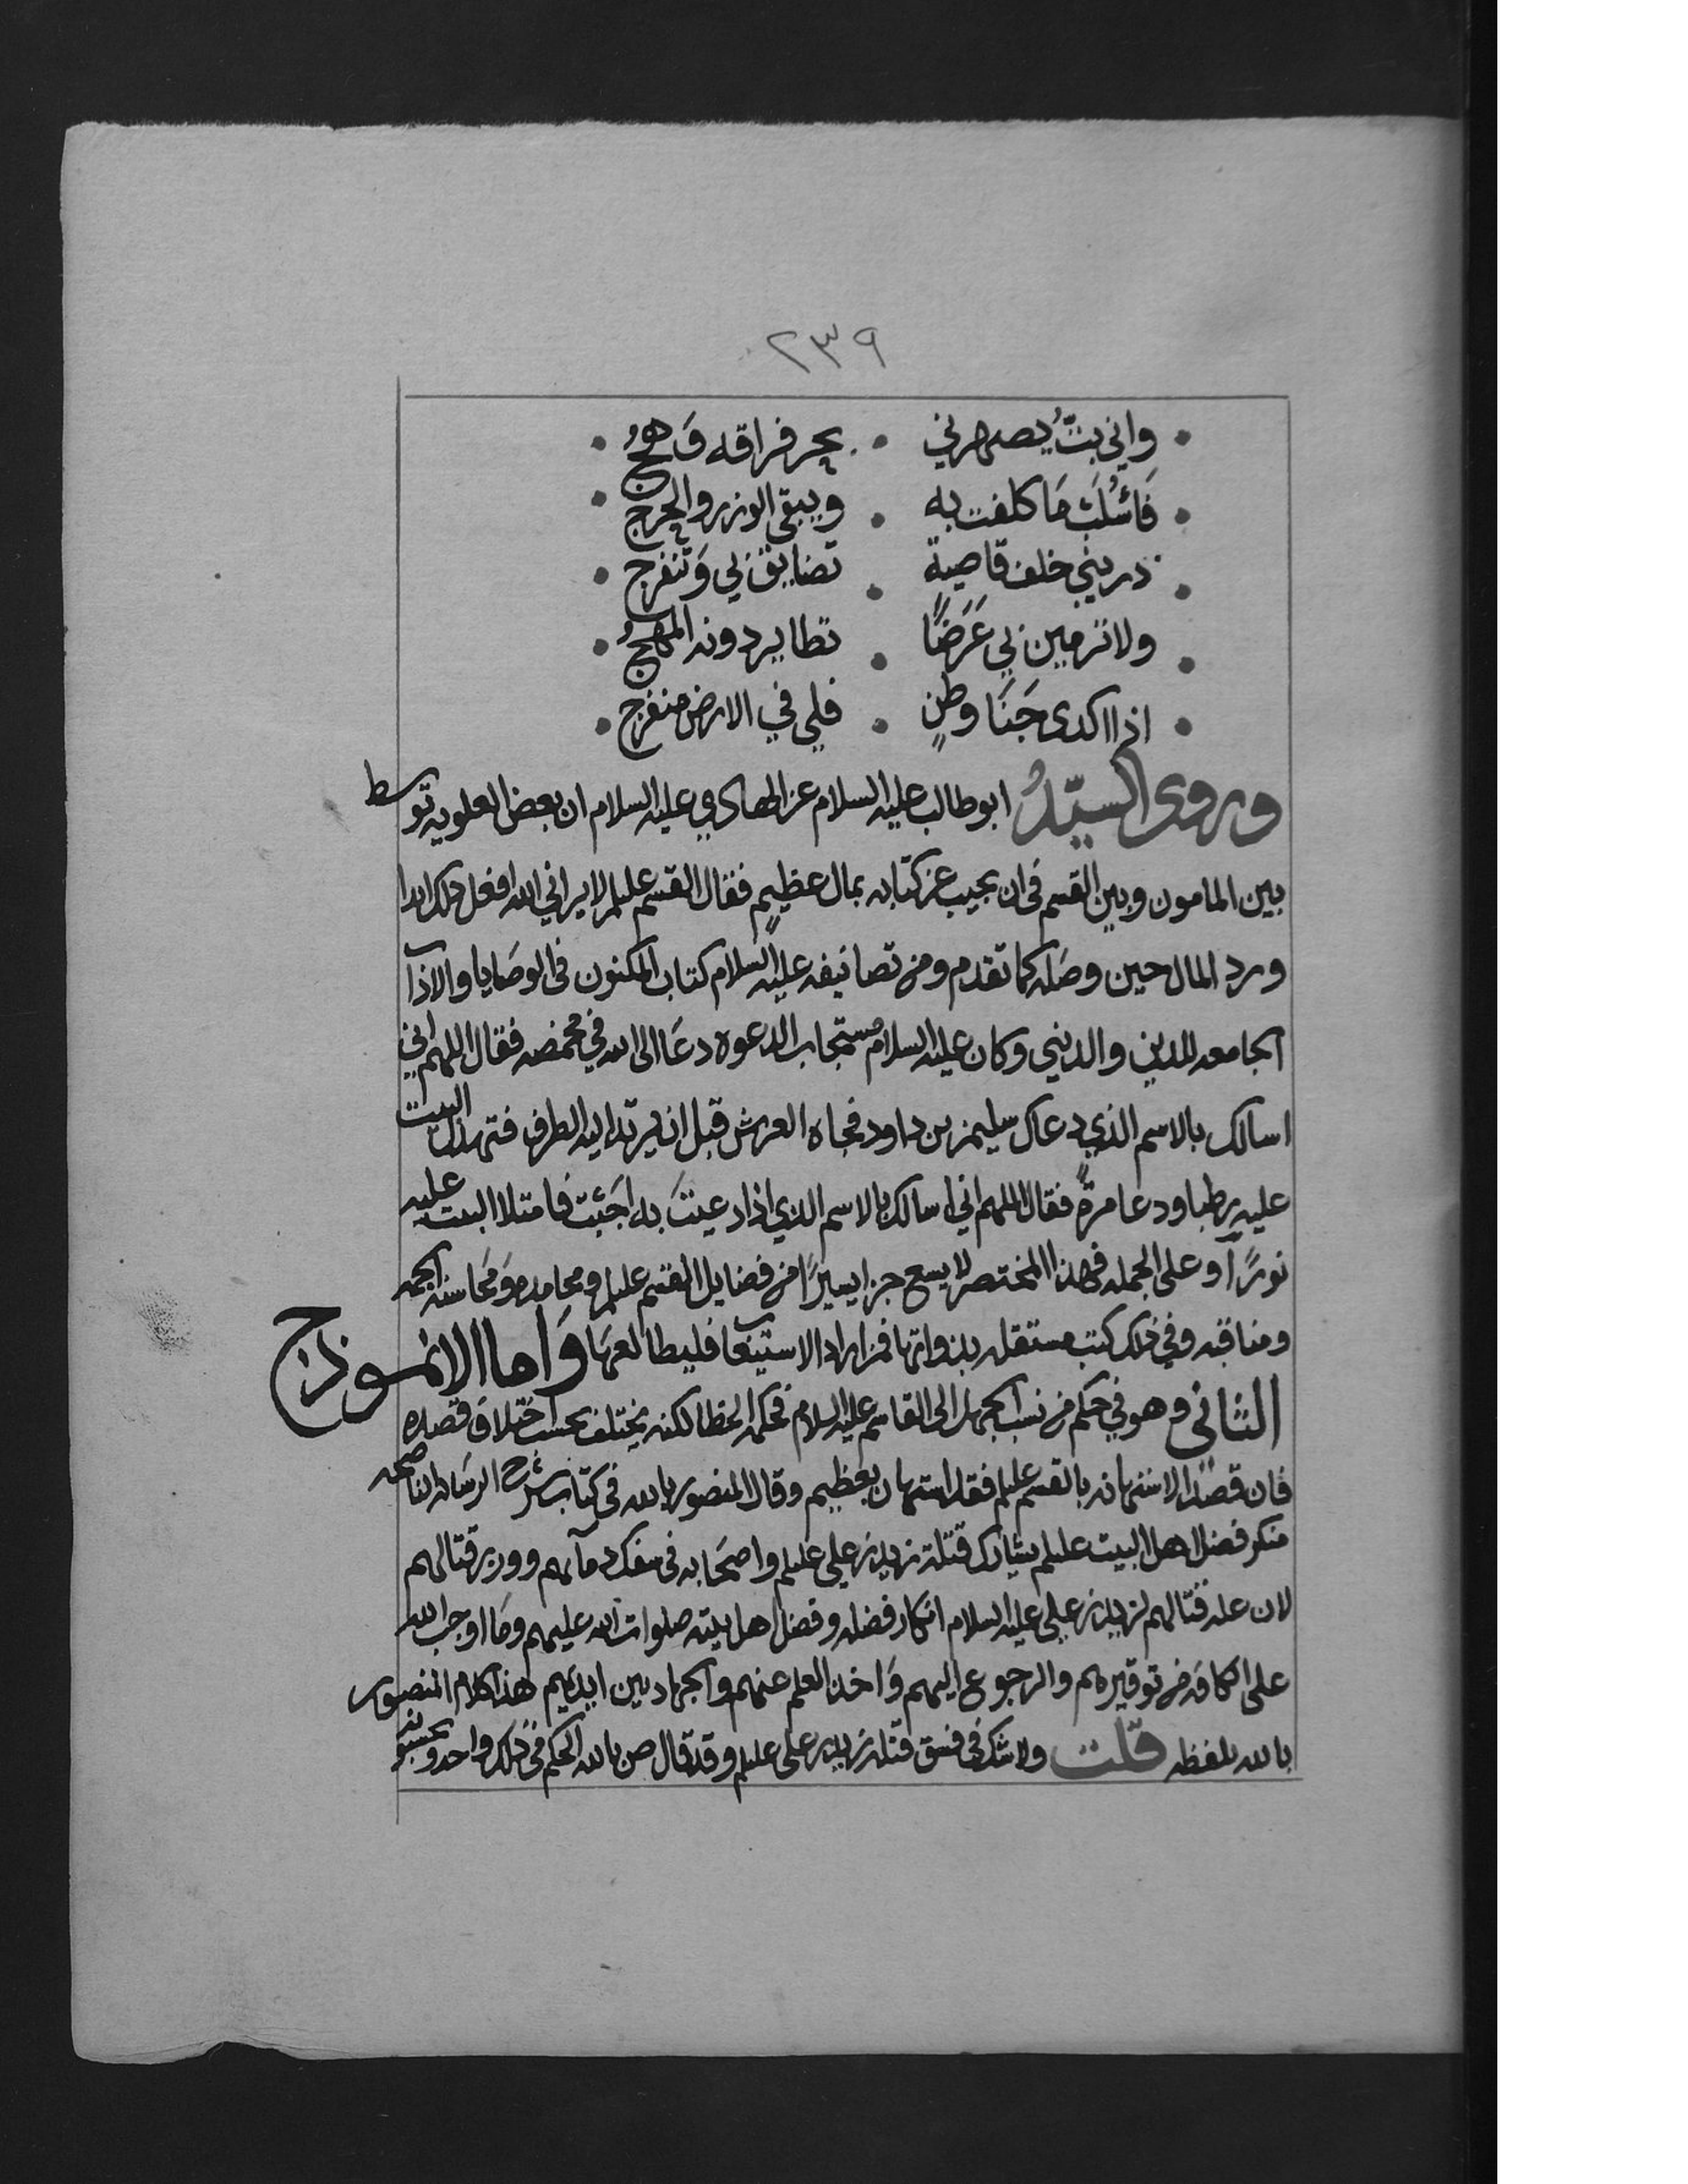 ٢٣٩
واني بتُّ يصهرني • بحر فراقه وَهجُ •
فَاسْلَتْ مَا كلفت به • ويبقى الوزر والحرج •
ذريني خلف قاصية • تضايق بي وَتنفرج •
ولا ترمين بي عَرَضًا • تطاير دونه المهجُ •
اذا اكدى جَنَا وطنٍ • فلي في الارض منفرج •
وروى السيّدُ ابو طالب عليه السلام عن الهادي عليه السلام ان بعض العلويه توسط
بين المامون وبين القسم في ان يجيب عن كتابه بمال عظيمٍ فقال القسم عليلم لا يراني الله افعل ذلك ابدا
ورد المال حين وصَله كما تقدم ومن تصانيفه عليه السلام كتاب المكنون في الوصَايا والاداب
الجامعه للدين والدنيى وكان عليه السلام مستجاب الدعوه دعَا الى الله في مخمصه فقال اللهم اني
اسالك بالاسم الذي دعاك سليمن بن داود فجاه العرش قبل ان يرتد اليه الطرف فتهدل البيت
عليه رطبا ودعا مرةً فقال اللهم اني اسالك بالاسم الذي اذا دعيتَ به اجَبْتَ فامتلا البيت عليه
نورًا وعلى الجمله فهذا المختصر لا يسع جزا يسيرًا من فضايل القسم عليلم ومحامده وَمَحَاسنه الجمه
ومناقبه وفي ذلك كتب مستقله بذواتها فمن اراد الاستيعاب فليطالعهَا وَاما الانموذج
الثاني وهو في حكم من نسب الجهل الى القاسم عليه السلام فحكمه الخطا لكنه يختلف بحسب اختلاف قصده
فان قصَدَ الاستهانه بالقسم عليلم فقد استهان بعظيم وقال المنصور بالله في كتاب شرح الرسَاله الناصحه
منكر فضل اهل البيت عليلم يشارك قتلة زيد بن علي عليلم واصحَابه في سفك دمآيهم ووزر قتالهم
لان علة قتالهم لزيد بن علي عليه السلام انكار فضله وفضل اهل بيته صلوات الله عليهم ومَا اوجب الله
على الكافه من توقيرهم والرجوع اليهم وَاخذ العلم عنهم والجهاد بين ايديهم هذا كلام المنصور
بالله بلفظه قلت ولا شك في فسق قتلة زيد بن علي عليلم وقد قال ص بالله الحكم في ذلك واحد